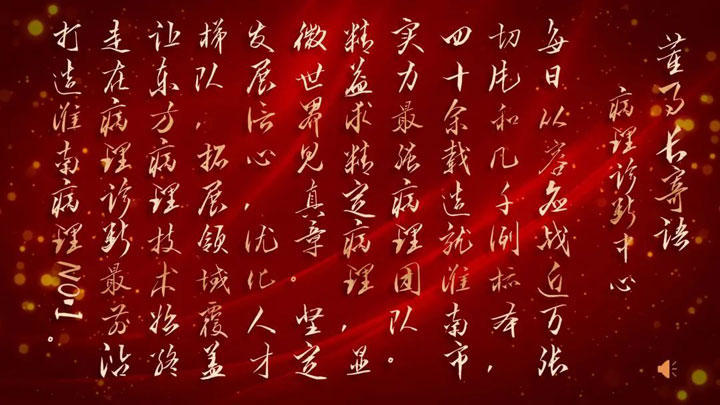 董事长寄语
病理诊断中心
每日从容应战近万张
切片和几千例标本，
四十余载造就淮南市
实力最强病理团队。
精益求精定病理，显
微世界见真章。坚定
发展信心，优化人才
梯队，拓展领域覆盖
让东方病理技术始终
走在病理诊断最前沿
打造淮南病理NO.1。